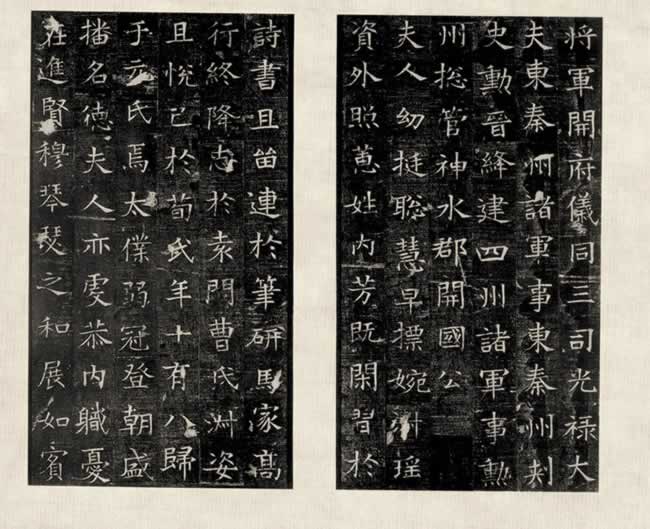 将軍開府儀同三司光禄大
夫東秦州諸軍事東秦州刾
史勳晉絳建四州諸軍事勲
州揔管神水郡開國公
夫人幼挺聡慧早摽婉淑瑶
資外照蕙姓内芳既閑習於
詩書且留連於筆研馬家髙
行終降志於袁門曹氏淑姿
且悅己於荀氏年十有八歸
于元氏焉太僕弱冠登朝盛
播名德夫人亦虔恭内職憂
在進賢穆琴瑟之和展如賓